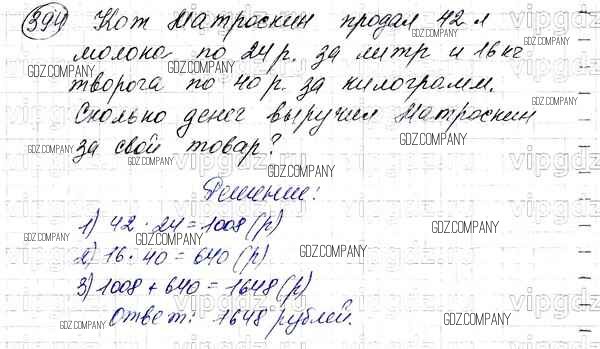 394) Кот Матроскин продал 42 л
молока по 24 р. за литр и 16 кг
творога по 40 р. за килограмм.
Сколько денег выручил Матроскин
за свой товар?
Решение:
1) 42 · 24 = 1008 (р)
2) 16 · 40 = 640 (р)
3) 1008 + 640 = 1648 (р)
Ответ: 1648 рублей.
GDZ.COMPANY
vipgdz